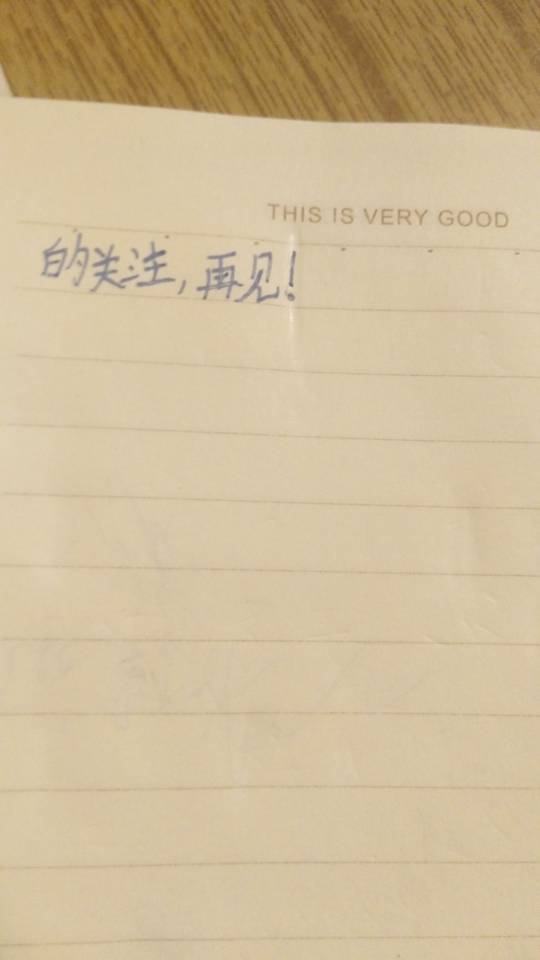 THIS IS VERY GOOD
的关注,再见!